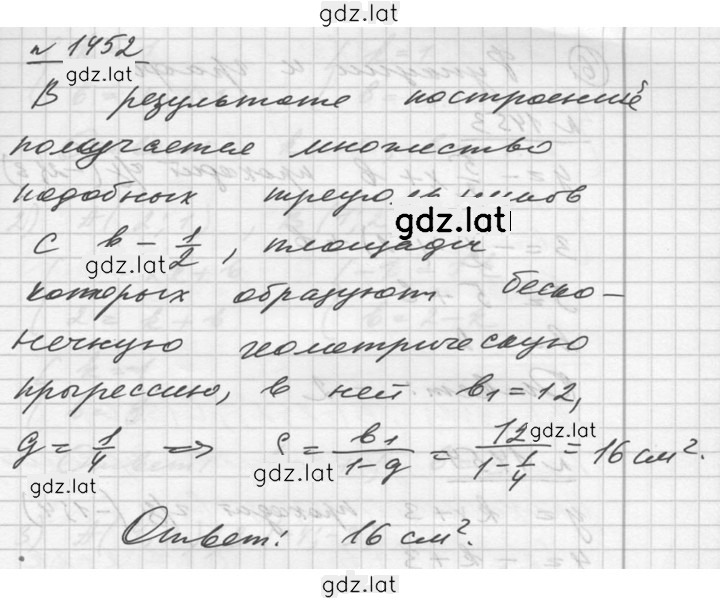 gdz.lat
n 1452
gdz.lat
В результате построений
получается множество
подобных треугольников
gdz.lat
с k - 1/2, площади
gdz.lat
которых образуют беско-
нечную геометрическую
прогрессию, в ней b₁ = 12,
gdz.lat
q = 1/4 => S = b₁/(1-q) = 12/(1-1/4) = 16 см².
gdz.lat gdz.lat
Ответ: 16 см².
gdz.lat